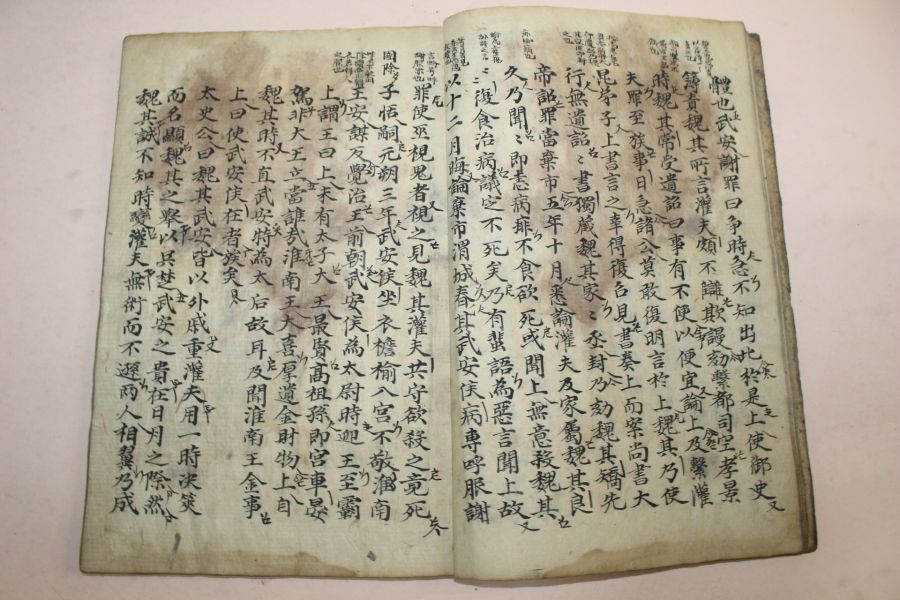 體也武安謝罪曰爭時急不知出此於是上使御史
簿責魏其所言灌夫頗不讎欺謾劾繫都司空孝景
時魏其常受遺詔曰事有不便以便宜論上及繫灌
夫罪至族事日急諸公莫敢復明言於上魏其乃使
昆弟子上書言之幸得復召見書奏上而案尚書大
行無遺詔〻書獨藏魏其家〻丞封乃劾魏其矯先
帝詔罪當棄市五年十月悉論灌夫及家屬魏其良
久乃聞〻即恚病痱不食欲死或聞上無意殺魏其
〻復食治病議定不死矣乃有蜚語為惡言聞上故
以十二月晦論棄市渭城春其武安侯病專呼服謝
罪使巫視鬼者視之見魏其灌夫共守欲殺之竟死
子恬嗣元朔三年武安侯坐衣襜褕入宮不敬淮南
王安謀反覺治王前朝武安侯為太尉時迎王至霸
上謂王曰上未有太子大王最賢高祖孫即宮車晏
駕非大王立當誰哉淮南王大喜厚遺金財物上自
魏其時不直武安特為太后故耳及聞淮南王金事
上曰使武安侯在者族矣
太史公曰魏其武安皆以外戚重灌夫用一時決筴
而名顯魏其之舉以吳楚武安之貴在日月之際然
魏其誠不知時變灌夫無術而不遜兩人相翼乃成
國除